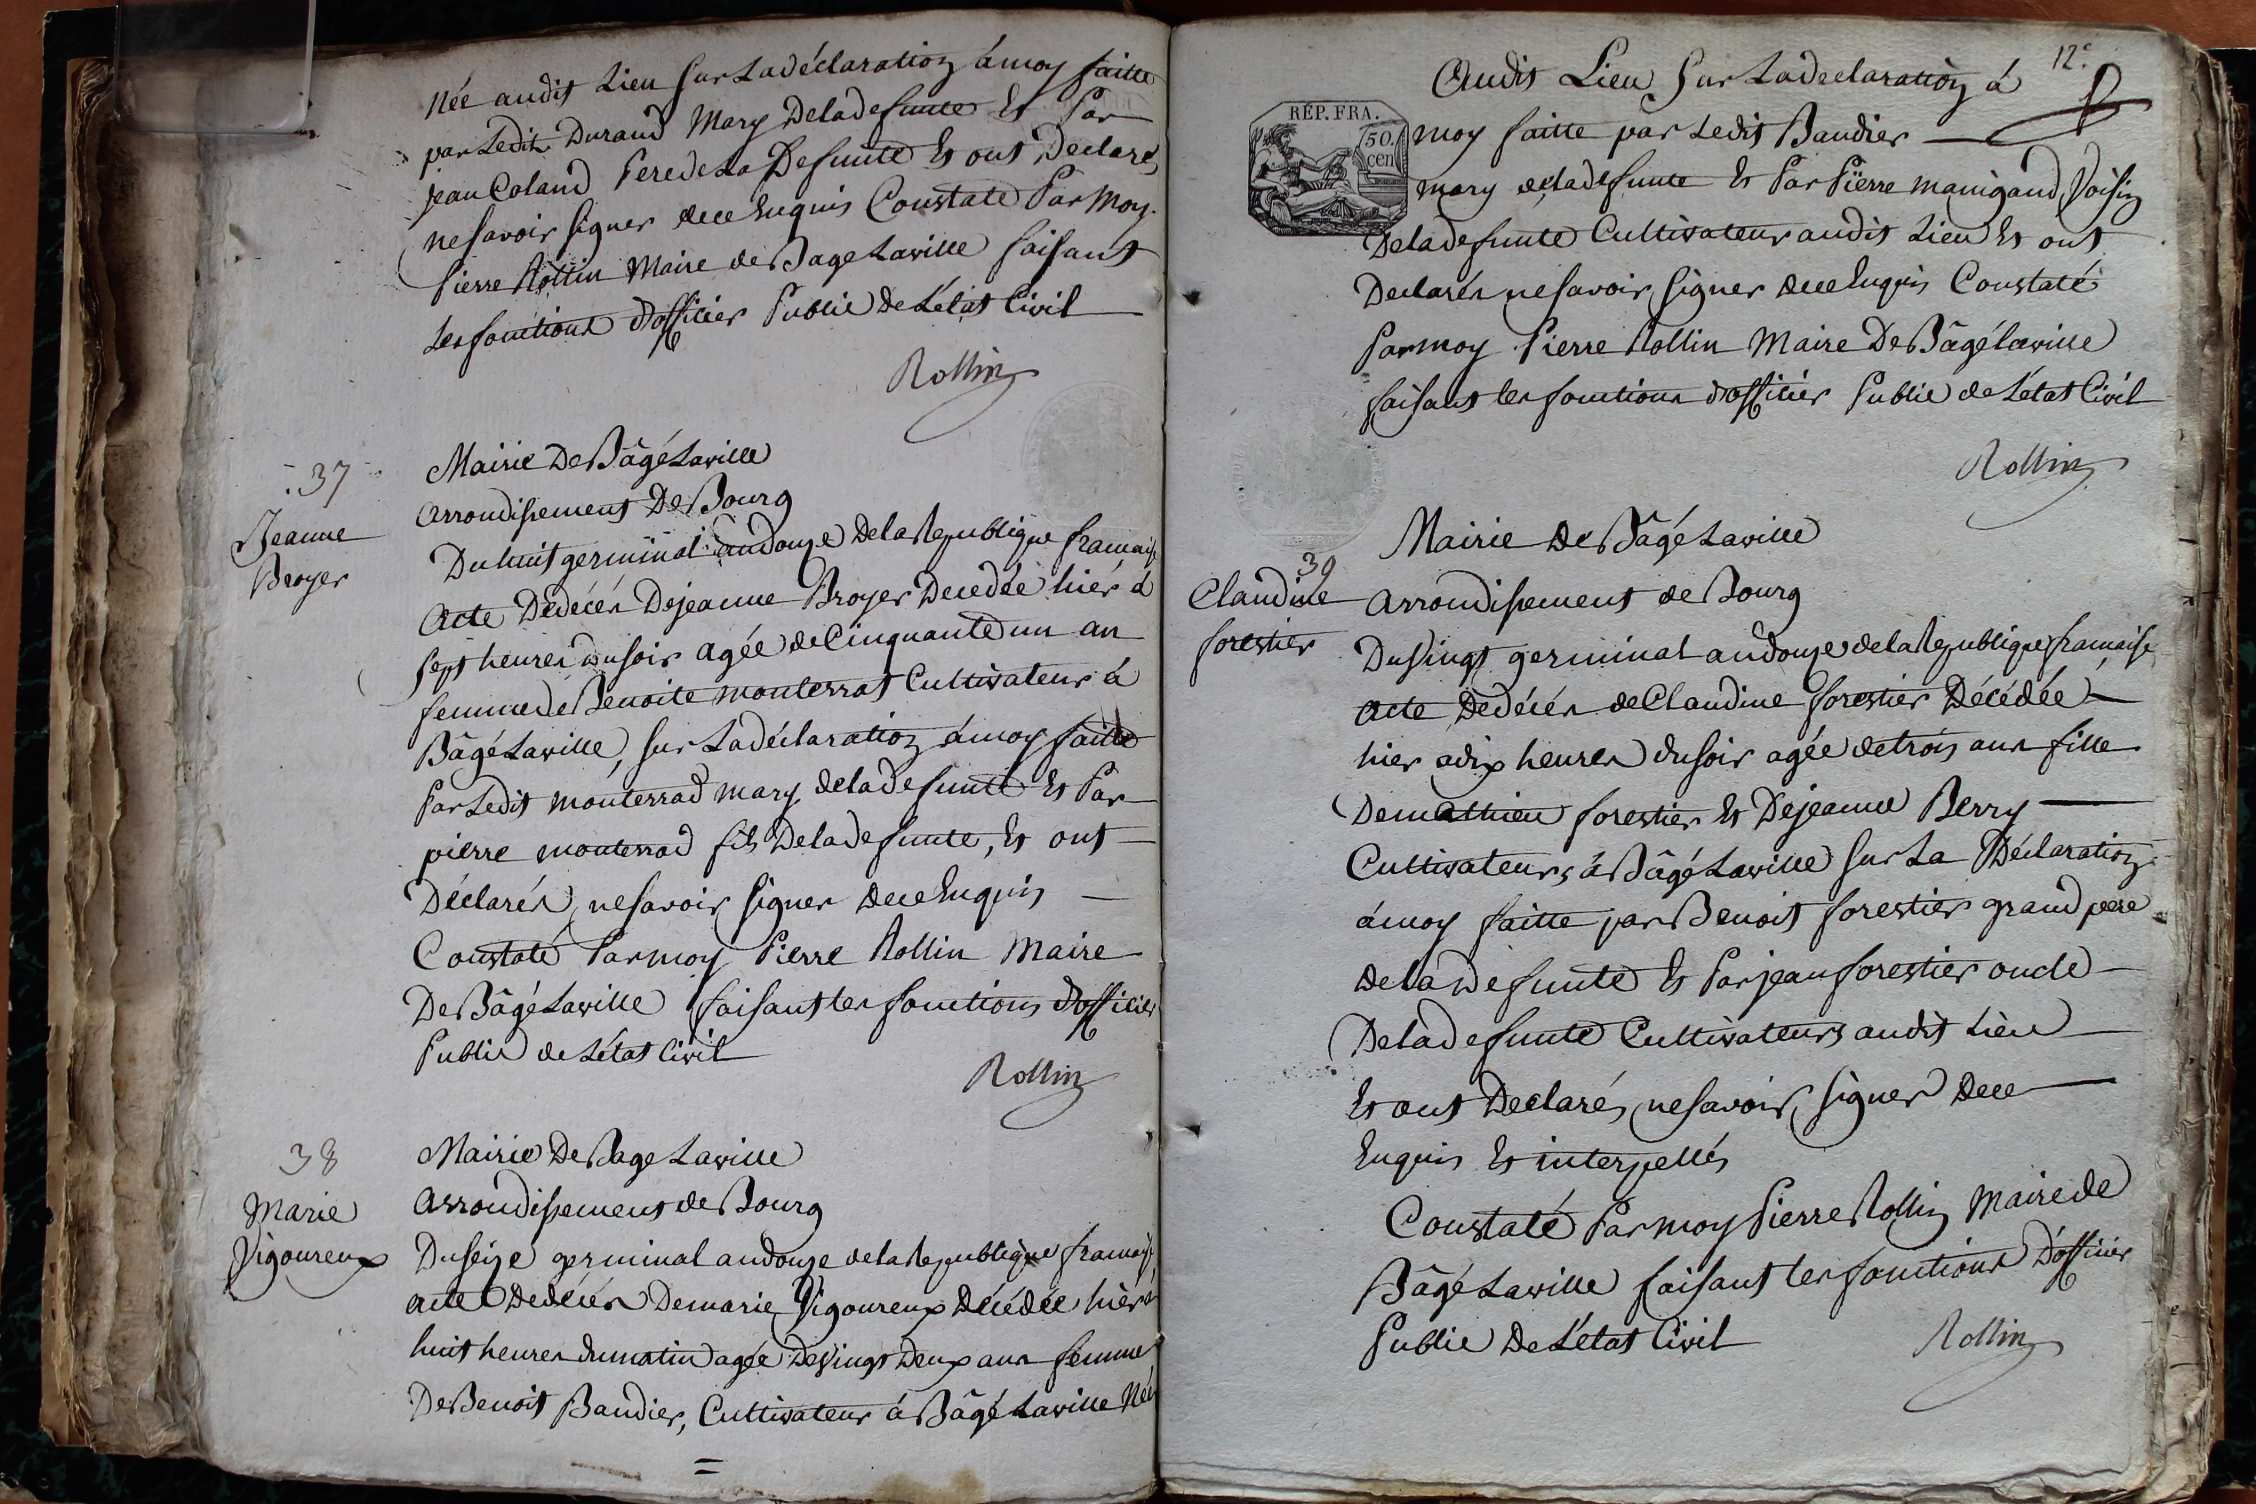 née audit Lieu Sur La déclaration à moy faitte
par Ledit Durand Mary De la defunte Et Par
jean Coland Pere de La Defunte Et ont Declaré
ne Savoir Signer de ce Enquis Constaté Par Moy
Pierre Rollin Maire de Bage Laville faisant
Les fonctions d'officier Public De L'état Civil
Rollin
37
Jeanne
Broyer
Mairie De Bâgé Laville
Arrondissement De Bourg
Du huit germinal an douze De la Republique francaise
Acte De décès De jeanne Broyer Decedée hiér à
sept heures du soir agée de Cinquante un an
femme de Benoite monterrat Cultivateur à
Bâgé Laville, sur La déclaration à moy faitte
Par Ledit monterrad mary de la defunte Et Par
pierre monterrad fils De la defunte, Et ont
Déclarés ne Savoir Signer De ce Enquis
Constaté Par moy Pierre Rollin Maire
De Bâgé Laville faisant les fonctions d'officier
Public de L'état Civil
Rollin
38
Marie
Vigoureux
Mairie De Bage Laville
Arrondissement de Bourg
Du seize germinal an douze de la Republique francaise
acte De décès De marie Vigoureux Décédée hièr à
huit heures du matin agée De vingt Deux ans femme
De Benoit Baudier, Cultivateur à Bâgé Laville Née
12e
Audit Lieu Sur La declaration à
REP. FRA.
50.
cen
moy faitte par Ledit Baudier
mary de la defunte Et Par Piérre manigand Voisin
De la defunte Cultivateur audit Lieu Et ont
Declarés ne Savoir Signer de ce Enquis Constaté
Par moy Pierre Rollin Maire De Bâgé laville
faisant les fonctions d'officiér Public de L'état Civil
Rollin
39
Claudine
forestier
Mairie De Bâgé Laville
Arrondissement de Bourg
Du Vingt germinal an douze de la Republique francaise
Acte De décès de Claudine forestier Décédée
hier a dix heures du soir agée de trois ans fille
De mathieu forestier Et De jeanne Berry
Cultivateurs à Bâgé Laville Sur La Déclaration
à moy faitte par Benoit forestier grand pere
De la Defunte Et Par jean forestier oncle
De la defunte Cultivateurs audit Lieu
Et ont Declarés ne Savoir Signer De ce
Enquis Et interpellés
Constaté Par moy Pierre Rollin Maire de
Bâgé Laville faisant les fonctions D'officier
Public De L'état Civil
Rollin